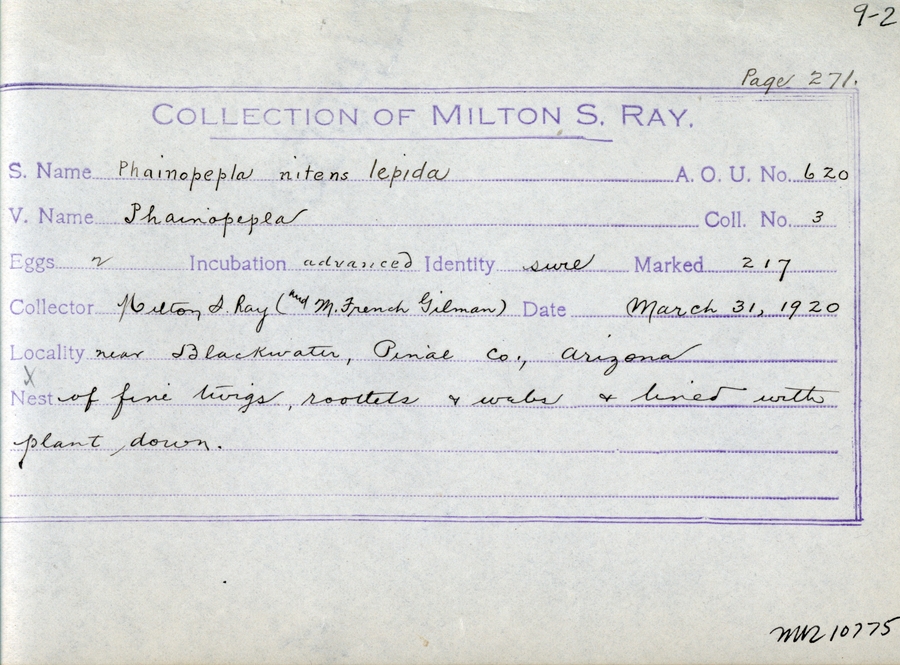 9-2
Page 271.
COLLECTION OF MILTON S. RAY.
S. Name Phainopepla nitens lepida A. O. U. No. 620
V. Name Phainopepla Coll. No. 3
Eggs 2 Incubation advanced Identity sure Marked 217
Collector Milton S. Ray (and M. French Gilman) Date March 31, 1920
Locality near Blackwater, Pinal Co., Arizona
X
Nest of fine twigs, rootlets & webs & lined with
plant down.
MVZ 10775